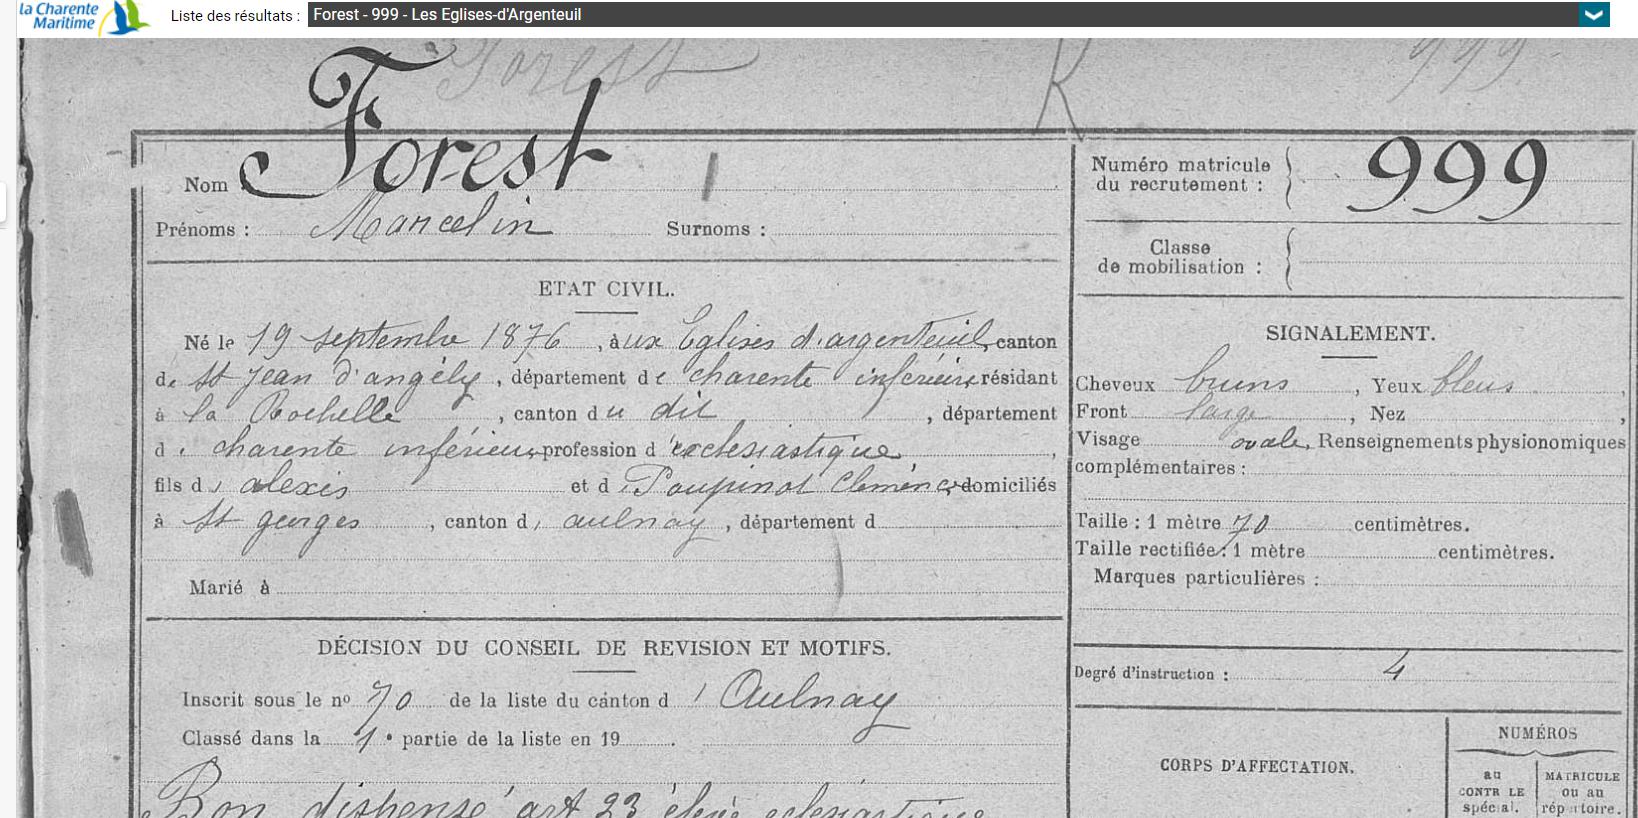 la Charente
Maritime
Liste des résultats : Forest - 999 - Les Eglises-d'Argenteuil
Forest R 999
Nom Forest
Prénoms : Marcelin Surnoms :
Numéro matricule
du recrutement : 999
Classe
de mobilisation :
ETAT CIVIL.
Né le 19 septembre 1876, à ux Eglises d'argenteuil, canton
de St Jean d'angély, département de charente inférieure résidant
à la Rochelle, canton du dit, département
d charente inférieure profession d'ecclesiastique,
fils d' alexis et d Poupinot Clemence domiciliés
à St georges, canton d' aulnay, département d
Marié à
SIGNALEMENT.
Cheveux bruns, Yeux bleus,
Front large, Nez ,
Visage ovale, Renseignements physionomiques
complémentaires :
Taille : 1 mètre 70 centimètres.
Taille rectifiée : 1 mètre centimètres.
Marques particulières :
Degré d'instruction : 4
DÉCISION DU CONSEIL DE REVISION ET MOTIFS.
Inscrit sous le nº 70 de la liste du canton d' Aulnay
Classé dans la 1e partie de la liste en 19 .
Bon dispensé art 23 élève ecclesiastique
CORPS D'AFFECTATION.
NUMÉROS
au
CONTR LE
spécial.
MATRICULE
ou au
répertoire.